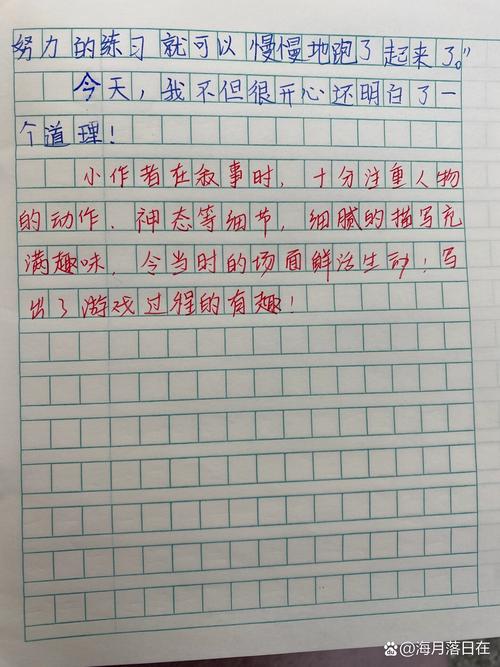 努力的练习就可以慢慢地跑了起来了。”
今天，我不但很开心还明白了一
个道理！
小作者在叙事时，十分注重人物
的动作、神态等细节，细腻的描写充
满趣味，令当时的场面鲜活生动！写
出了游戏过程的有趣！
海月落日在